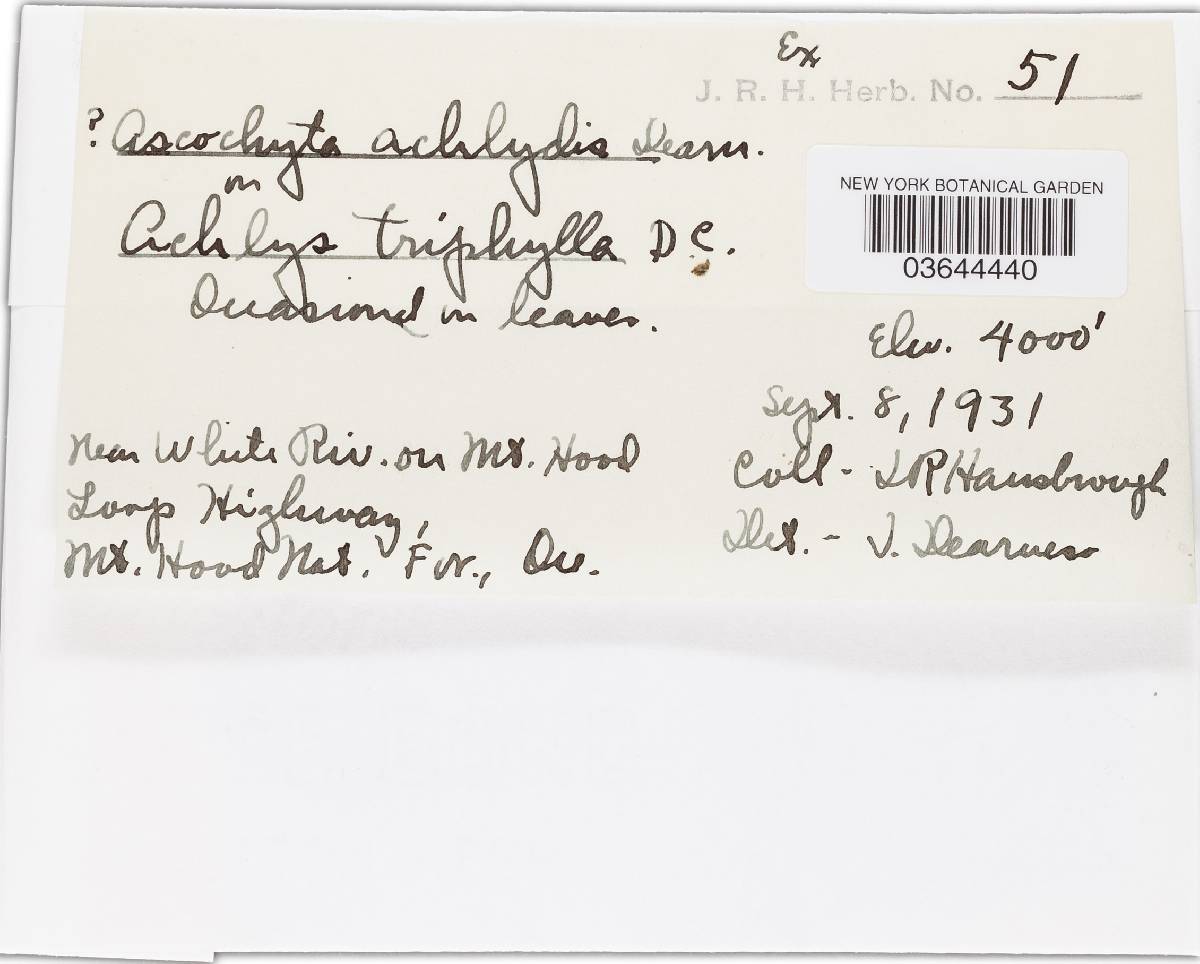 Ex
J. R. H. Herb. No. 51
? Ascochyta achlydis Dearn.
on
Achlys triphylla DC.
Occasional on leaves.
NEW YORK BOTANICAL GARDEN
03644440
Elev. 4000'
Sept. 8, 1931
Near White Riv. on Mt. Hood
Loop Highway,
Mt. Hood Nat. For., Ore.
Coll - J R Hansbrough
Det. - J. Dearness